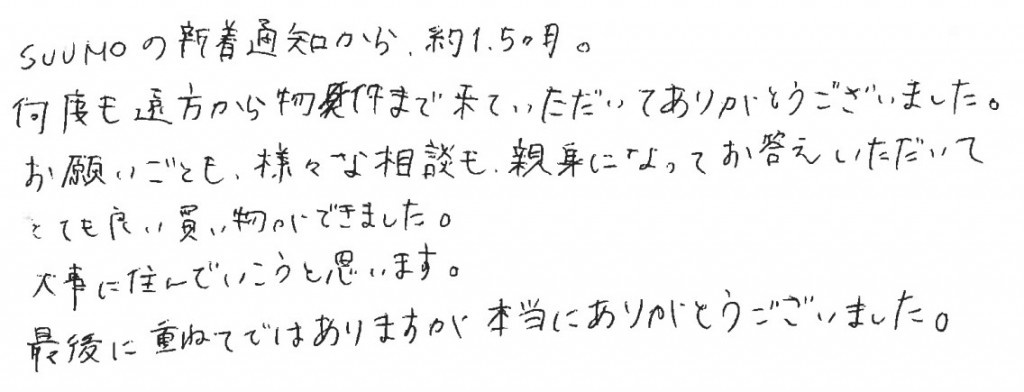 SUUMOの新着通知から、約1.5ヶ月。
何度も遠方から物件まで来ていただいてありがとうございました。
お願いごとも、様々な相談も、親身になってお答えいただいて
とても良い買い物ができました。
大事に住んでいこうと思います。
最後に重ねてではありますが本当にありがとうございました。